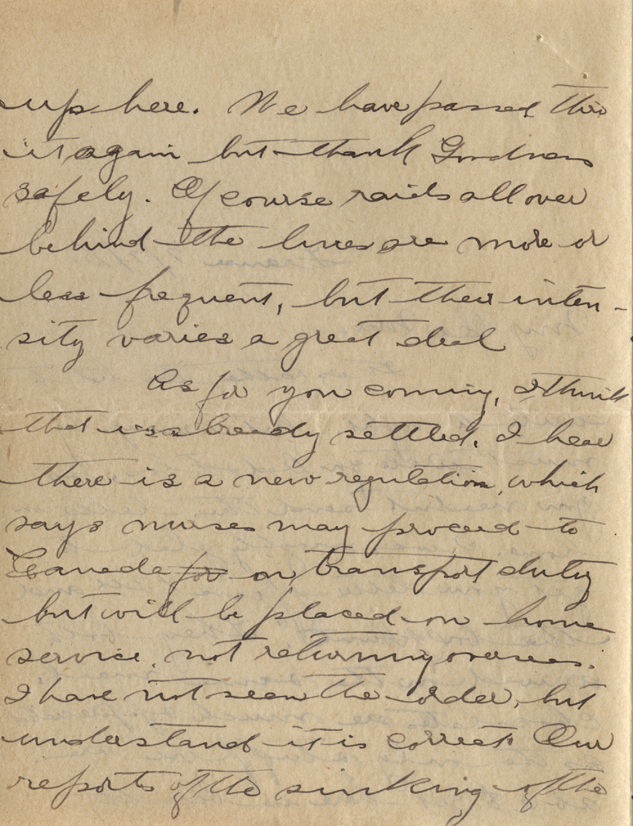 up here. We have passed thro
it again but thank Goodness
safely. Of course raids all over
behind the lines are more or
less frequent, but their inten-
sity varies a great deal
As for you coming, I think
that is already settled. I hear
there is a new regulation, which
says nurses may proceed to
Canada for on transport duty
but will be placed on home
service, not returning overseas.
I have not seen the order, but
understand it is correct. Our
reports of the sinking of the